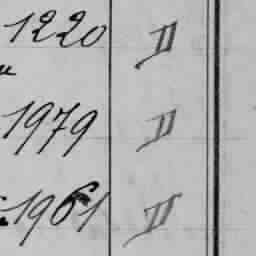 1220 II
1979 II
1961 II